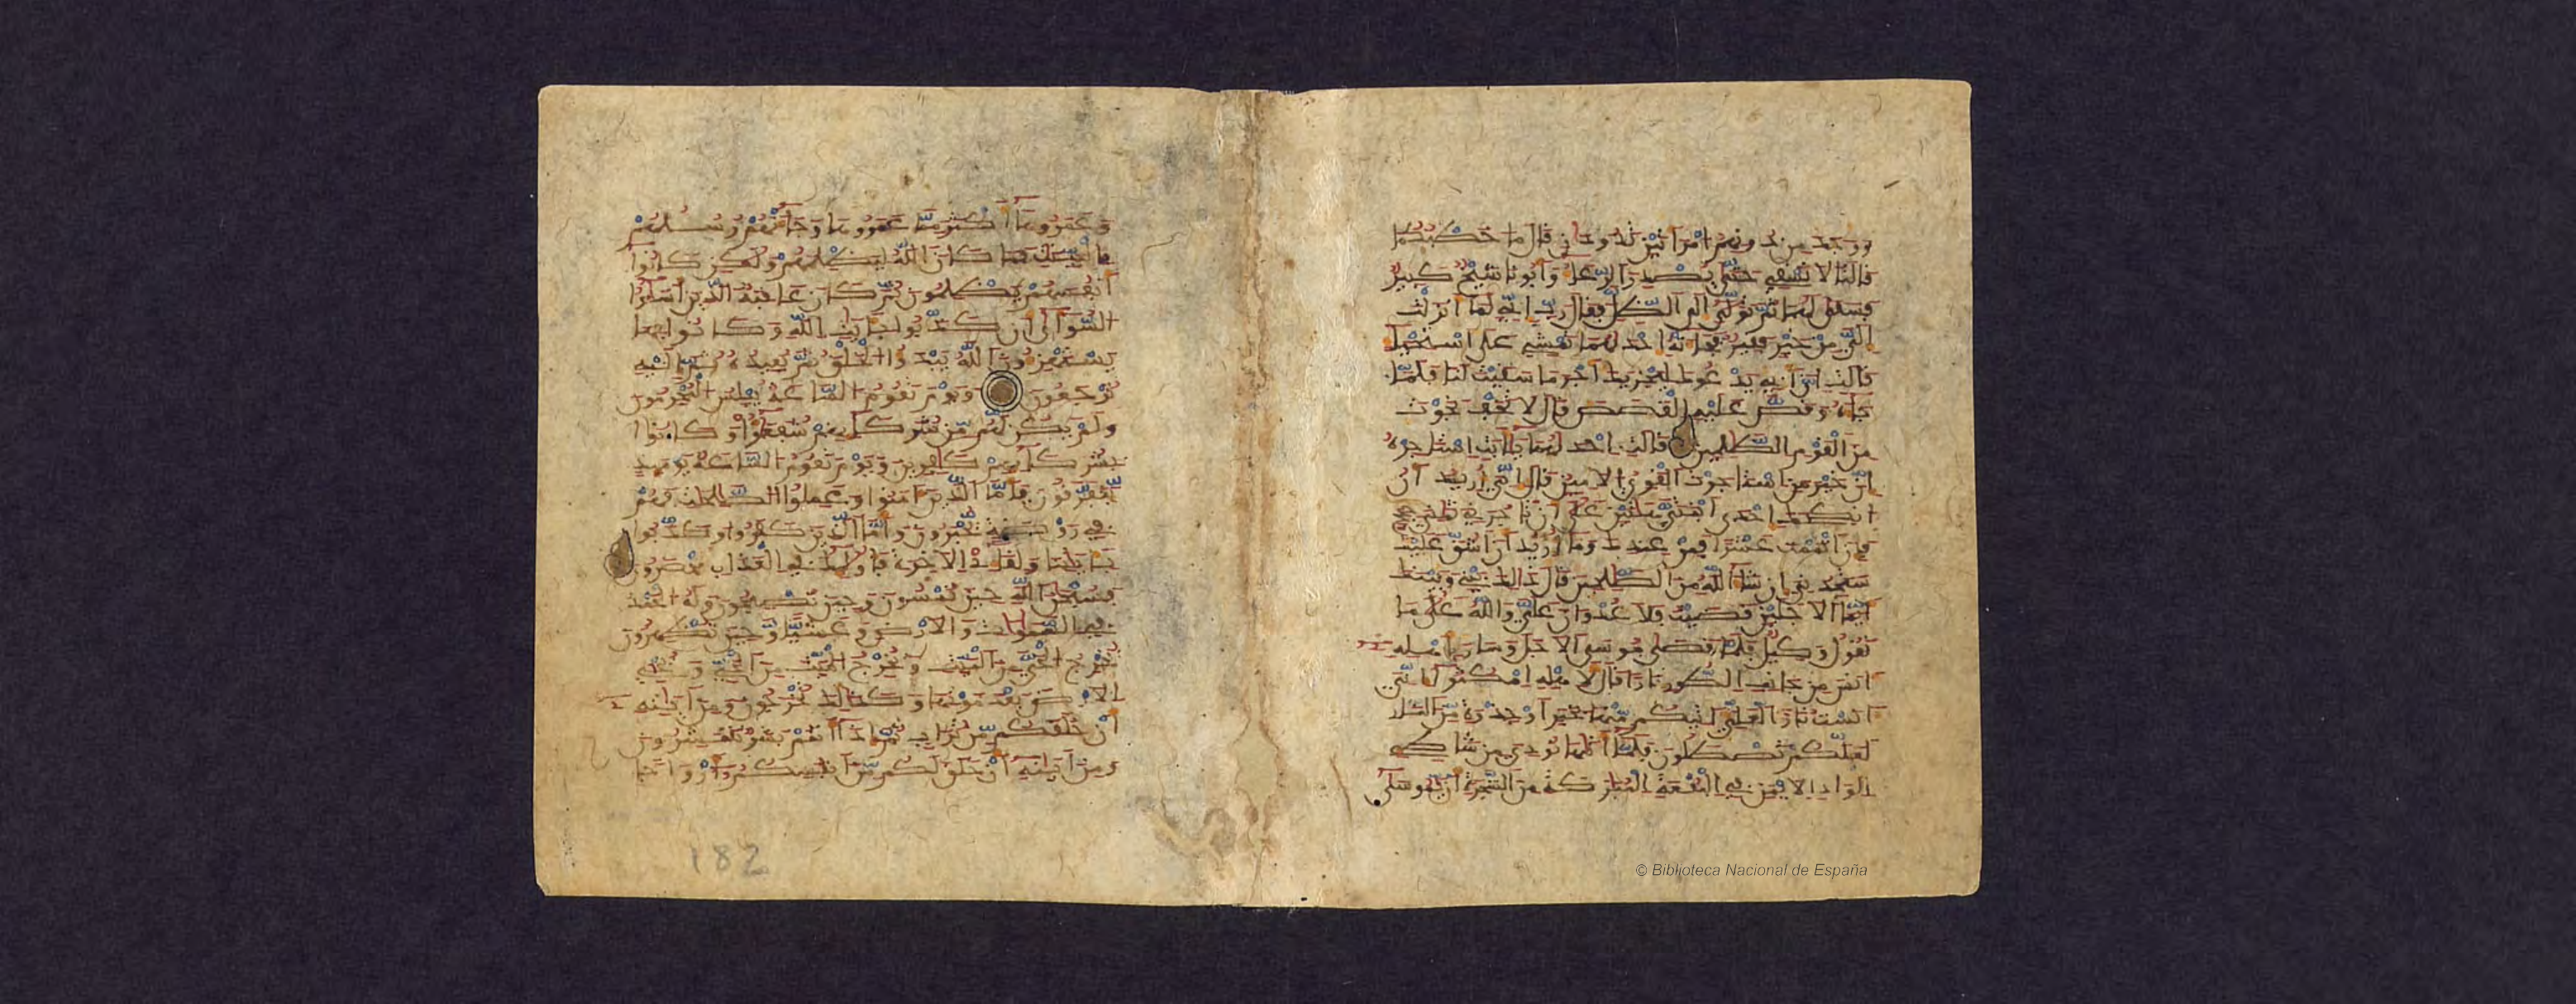 ووجد من دونهم امرأتين تذودان قال ما خطبكما
قالتا لا نسقي حتى يصدر الرعاء وأبونا شيخ كبير
فسقى لهما ثم تولى إلى الظل فقال رب إني لما أنزلت
إلي من خير فقير فجاءته إحداهما تمشي على استحياء
قالت إن أبي يدعوك ليجزيك أجر ما سقيت لنا فلما
جاءه وقص عليه القصص قال لا تخف نجوت
من القوم الظالمين قالت إحداهما يا أبت استأجره
إن خير من استأجرت القوي الأمين قال إني أريد أن
أنكحك إحدى ابنتي هاتين على أن تأجرني ثماني حجج
فإن أتممت عشرا فمن عندك وما أريد أن أشق عليك
ستجدني إن شاء الله من الصالحين قال ذلك بيني وبينك
أيما الأجلين قضيت فلا عدوان علي والله على ما
نقول وكيل فلما قضى موسى الأجل وسار بأهله
آنس من جانب الطور نارا قال لأهله امكثوا إني
آنست نارا لعلي آتيكم منها بخبر أو جذوة من النار
لعلكم تصطلون فلما أتاها نودي من شاطئ
الواد الأيمن في البقعة المباركة من الشجرة أن يا موسى
وعمروها أكثر مما عمروها وجاءتهم رسلهم
بالبينات فما كان الله ليظلمهم ولكن كانوا
أنفسهم يظلمون ثم كان عاقبة الذين أساءوا
السوأى أن كذبوا بآيات الله وكانوا بها
يستهزءون الله يبدأ الخلق ثم يعيده ثم إليه
ترجعون ويوم تقوم الساعة يبلس المجرمون
ولم يكن لهم من شركائهم شفعاء وكانوا
بشركائهم كافرين ويوم تقوم الساعة يومئذ
يتفرقون فأما الذين آمنوا وعملوا الصالحات فهم
في روضة يحبرون وأما الذين كفروا وكذبوا
بآياتنا ولقاء الآخرة فأولئك في العذاب محضرون
فسبحان الله حين تمسون وحين تصبحون وله الحمد
في السماوات والأرض وعشيا وحين تظهرون
يخرج الحي من الميت ويخرج الميت من الحي ويحيي
الأرض بعد موتها وكذلك تخرجون ومن آياته
أن خلقكم من تراب ثم إذا أنتم بشر تنتشرون
ومن آياته أن خلق لكم من أنفسكم أزواجا
182
© Biblioteca Nacional de España